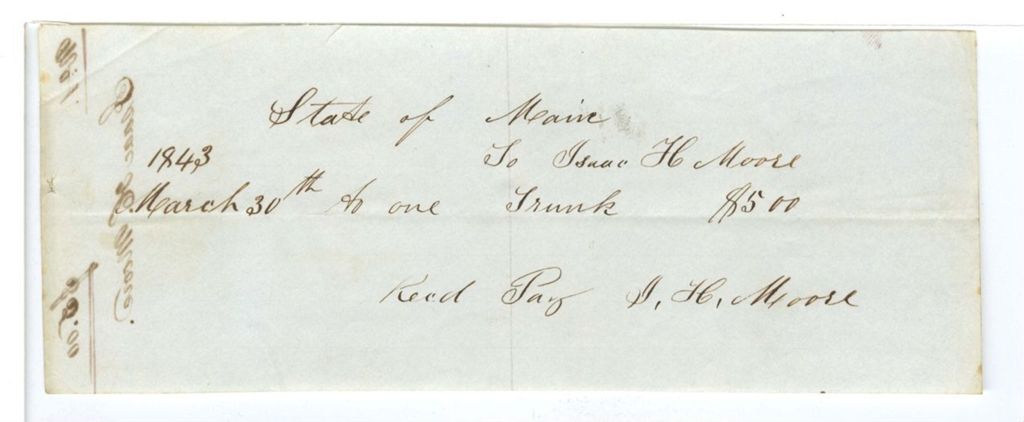 State of Maine
1843 To Isaac H Moore
March 30th to one Trunk $5 00
Recd Pay I. H. Moore
Isaac H Moore
$5.00